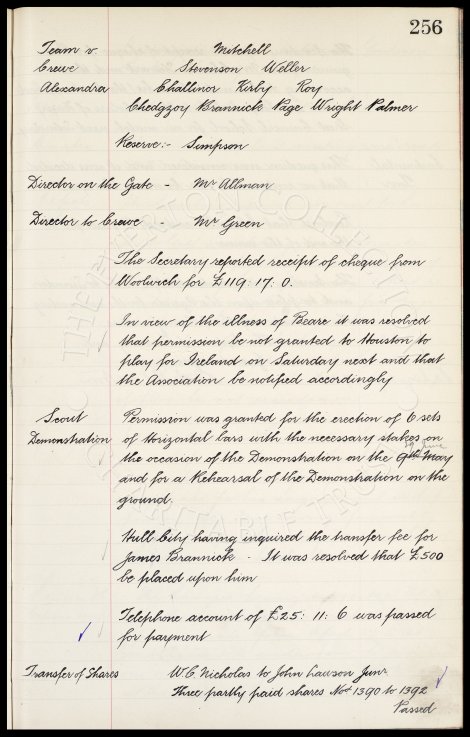 256
Team v Mitchell
Crewe Stevenson Weller
Alexandra Challinor Kirby Roy
Chedgzoy Brannick Page Wright Palmer
Reserve:- Simpson
Director on the Gate - Mr Allman
Director to Crewe - Mr Green
The Secretary reported receipt of cheque from
Woolwich for £119:17:0.
In view of the illness of Beare it was resolved
that permission be not granted to Houston to
play for Ireland on Saturday next and that
the Association be notified accordingly
Scout Permission was granted for the erection of 6 sets
Demonstration of Horizontal bars with the necessary stakes on
the occasion of the Demonstration on the 9th May
June
and for a Rehearsal of the Demonstration on the
ground.
Hull City having inquired the transfer fee for
James Brannick - It was resolved that £500
be placed upon him
Telephone account of £25:11:6 was passed
for payment
Transfer of Shares W.C. Nicholas to John Lawson Junr
Three partly paid shares Nos 1390 to 1392
Passed
THE EVERTON COLLECTION
CHARITABLE TRUST